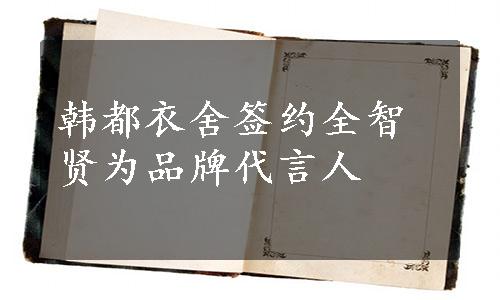 韩都衣舍签约全智
贤为品牌代言人